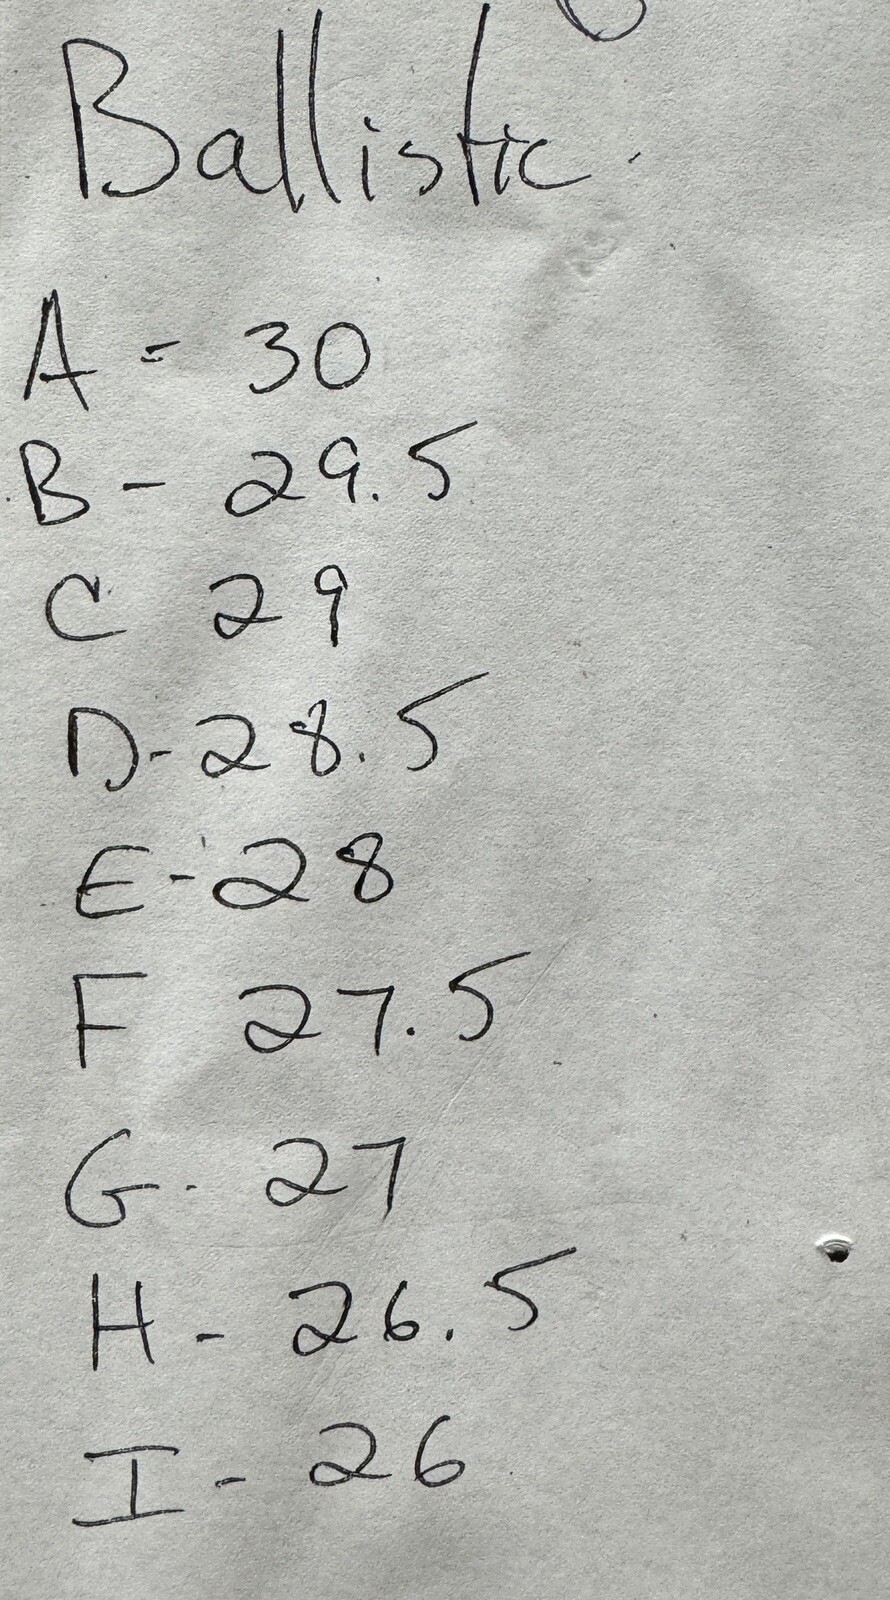 Ballistic.
A = 30
B - 29.5
C 29
D - 28.5
E - 28
F 27.5
G - 27
H - 26.5
I - 26